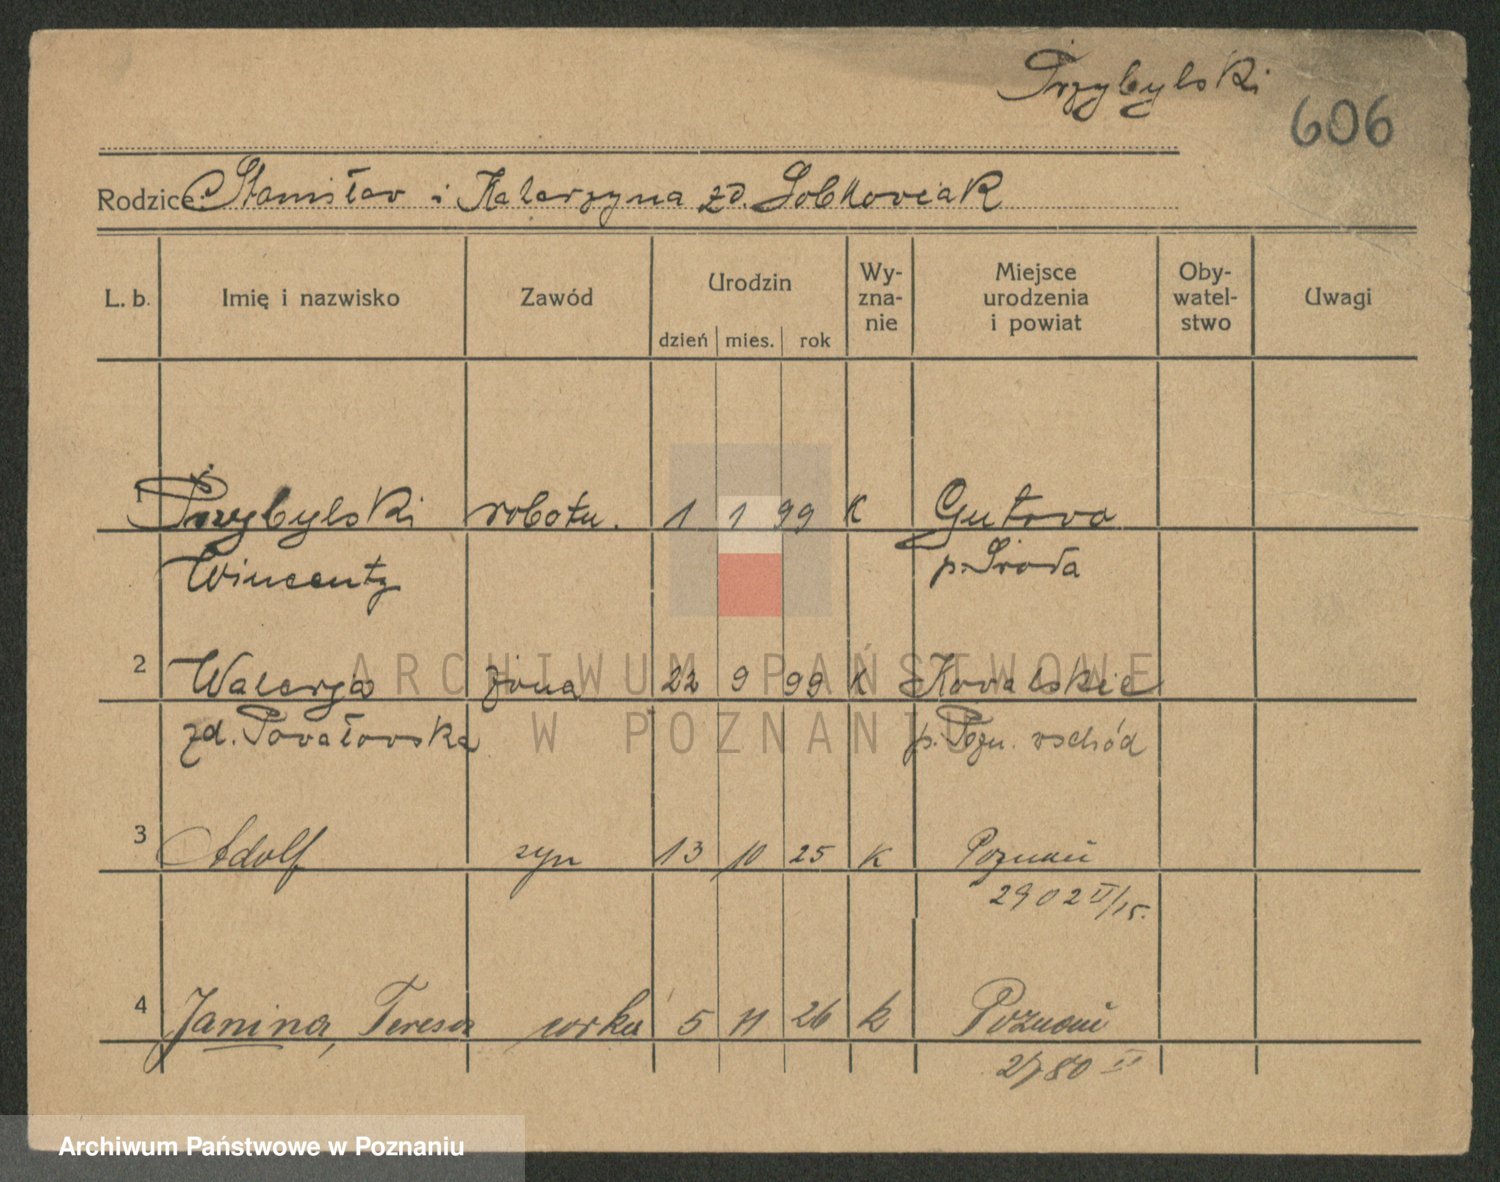 Przybylski
606
Rodzice: Stanisław i Katarzyna zd. Sobkoviak
L. b. Imię i nazwisko Zawód Urodzin dzień mies. rok Wy-zna-nie Miejsce urodzenia i powiat Oby-watel-stwo Uwagi
1 Przybylski robotn. 1 1 99 K Gutovo
Wincenty p. Środa
2 Walerja żona 22 9 99 K Kovalskie
zd. Povałovska p. Pozn. vschód
3 Adolf syn 13 10 25 K Poznań
2902 II/25.
4 Janina, Teresa corka 5 11 26 k Poznań
2780 II
ARCHIWUM PAŃSTWOWE
W POZNANIU
Archiwum Państwowe w Poznaniu